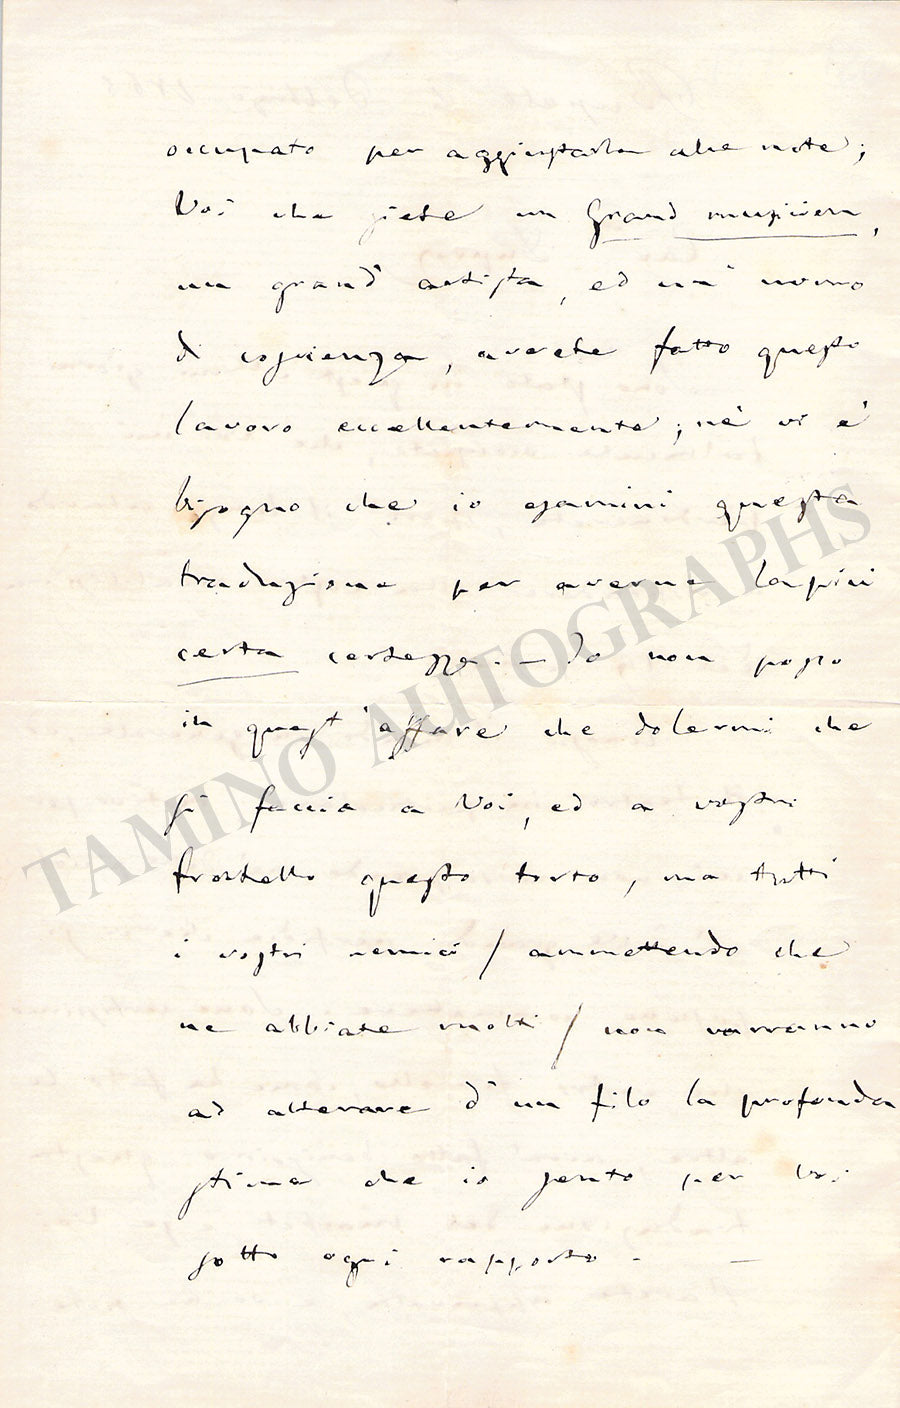 occupato per aggiustarla alle note;
Voi che siete un Grand musicien,
un grand' artista, ed un' uomo
di coscienza, avrete fatto questo
lavoro eccellentemente; nè vi è
bisogno che io esamini questa
traduzione per averne la più
certa certezza. — Io non posso
in quest'affare che dolermi che
si faccia a Voi, ed a vostri
fratello questo torto, ma tutti
i vostri nemici / ammettendo che
ne abbiate molti / non varranno
ad alterare d' un filo la profonda
stima che io sento per Voi
sotto ogni rapporto. —
TAMINO AUTOGRAPHS